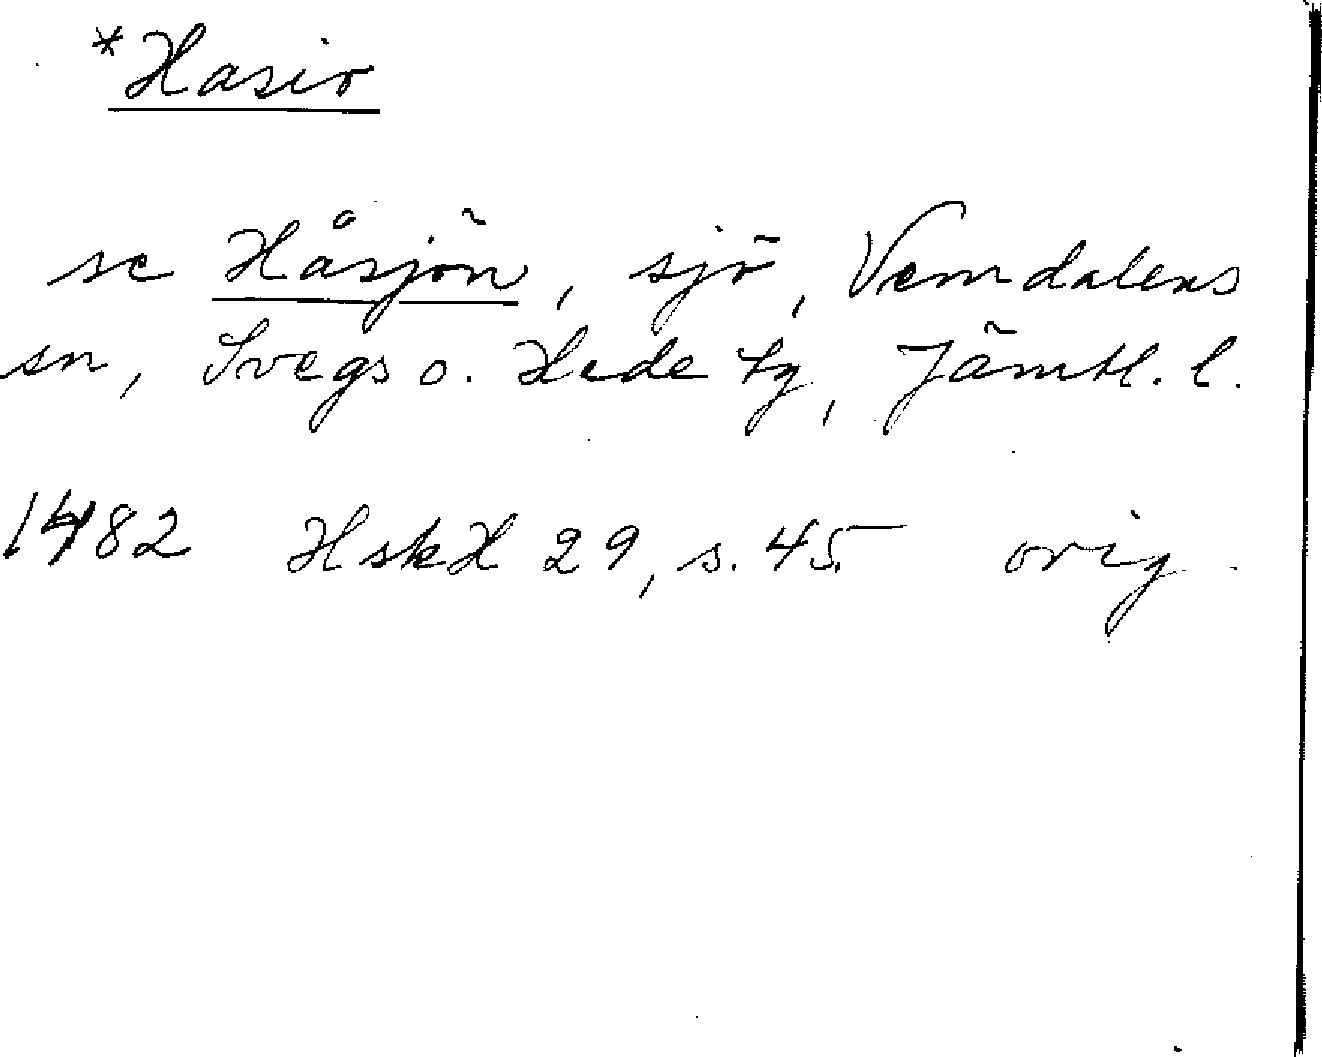 *Hasio
se Håsjön, sjö, Vemdalens
sn, Svegs o. Hede tg, Jämtl. l.
1482 HskH 29, s. 45 orig.